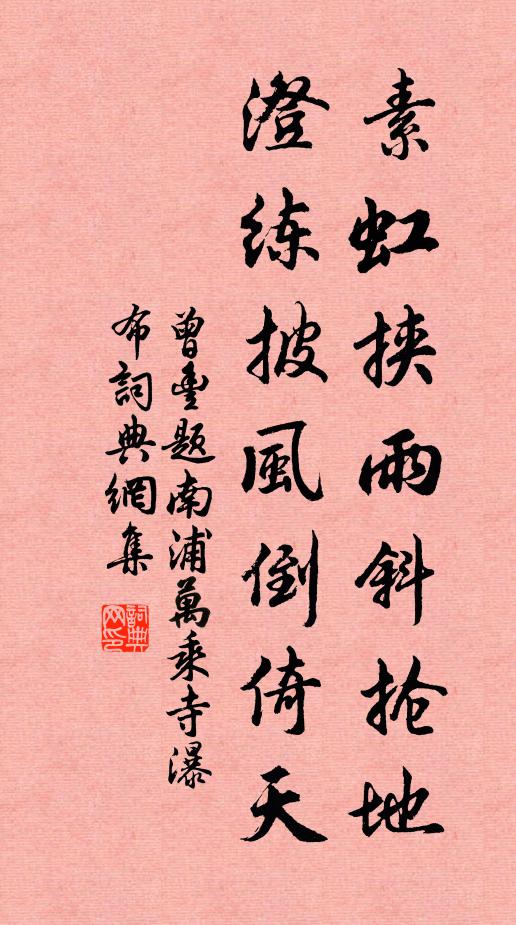 素虹挟雨斜抢地
澄练披風倒倚天
曾豐題南浦萬乘寺瀑
布詞典網集
詞典網印